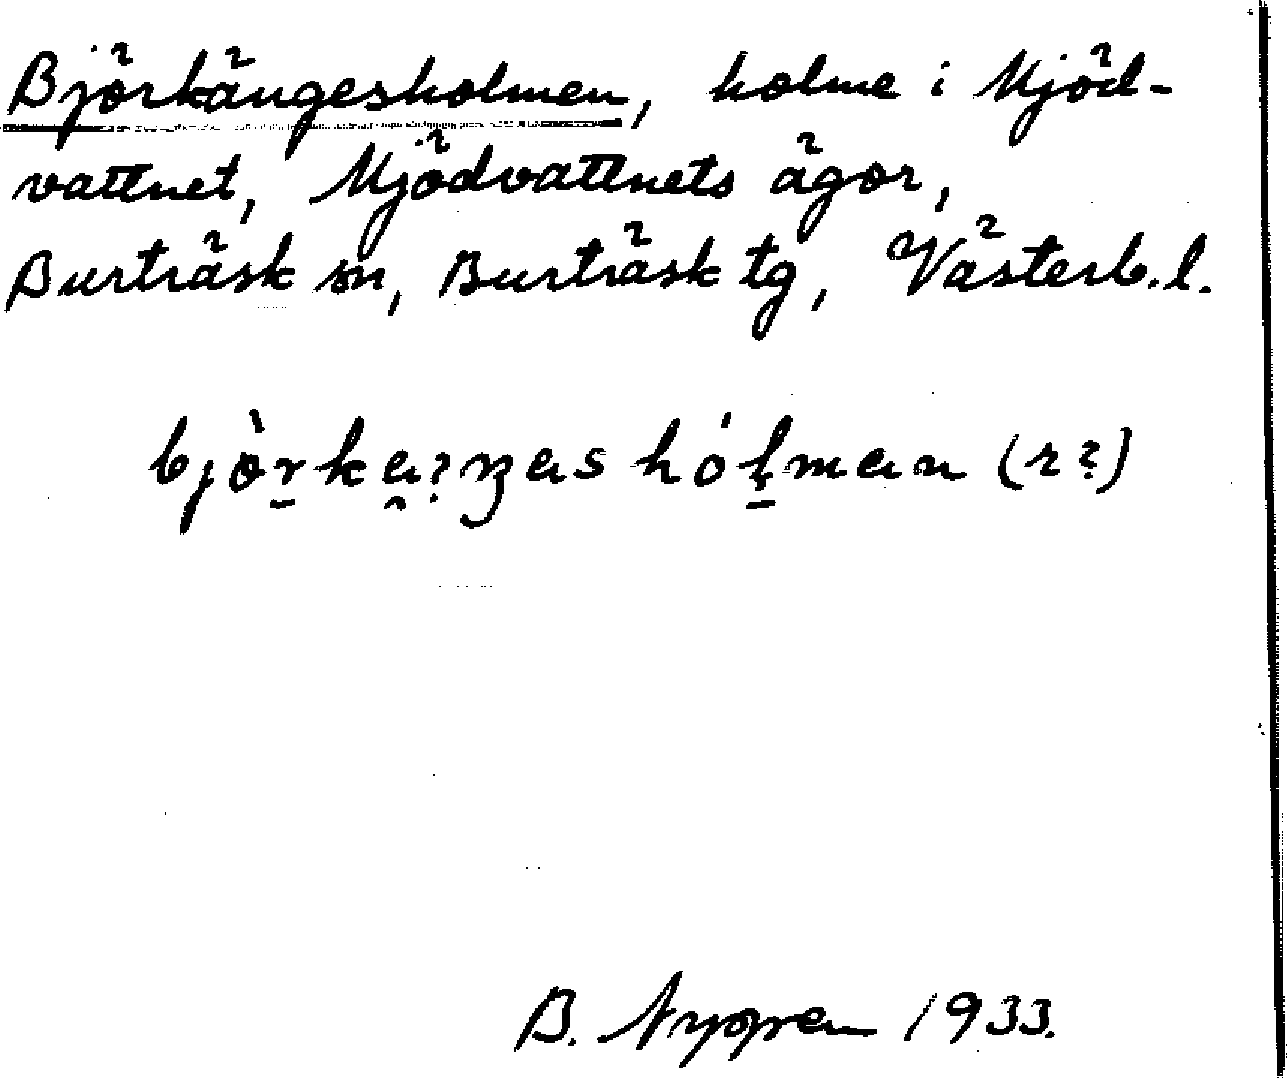 Björkängesholmen, holme i Mjöd-
vattnet, Mjödvattnets ägor,
Burträsk sn, Burträsk tg, Västerb. l.
(r?)
B. Nygren 1933.